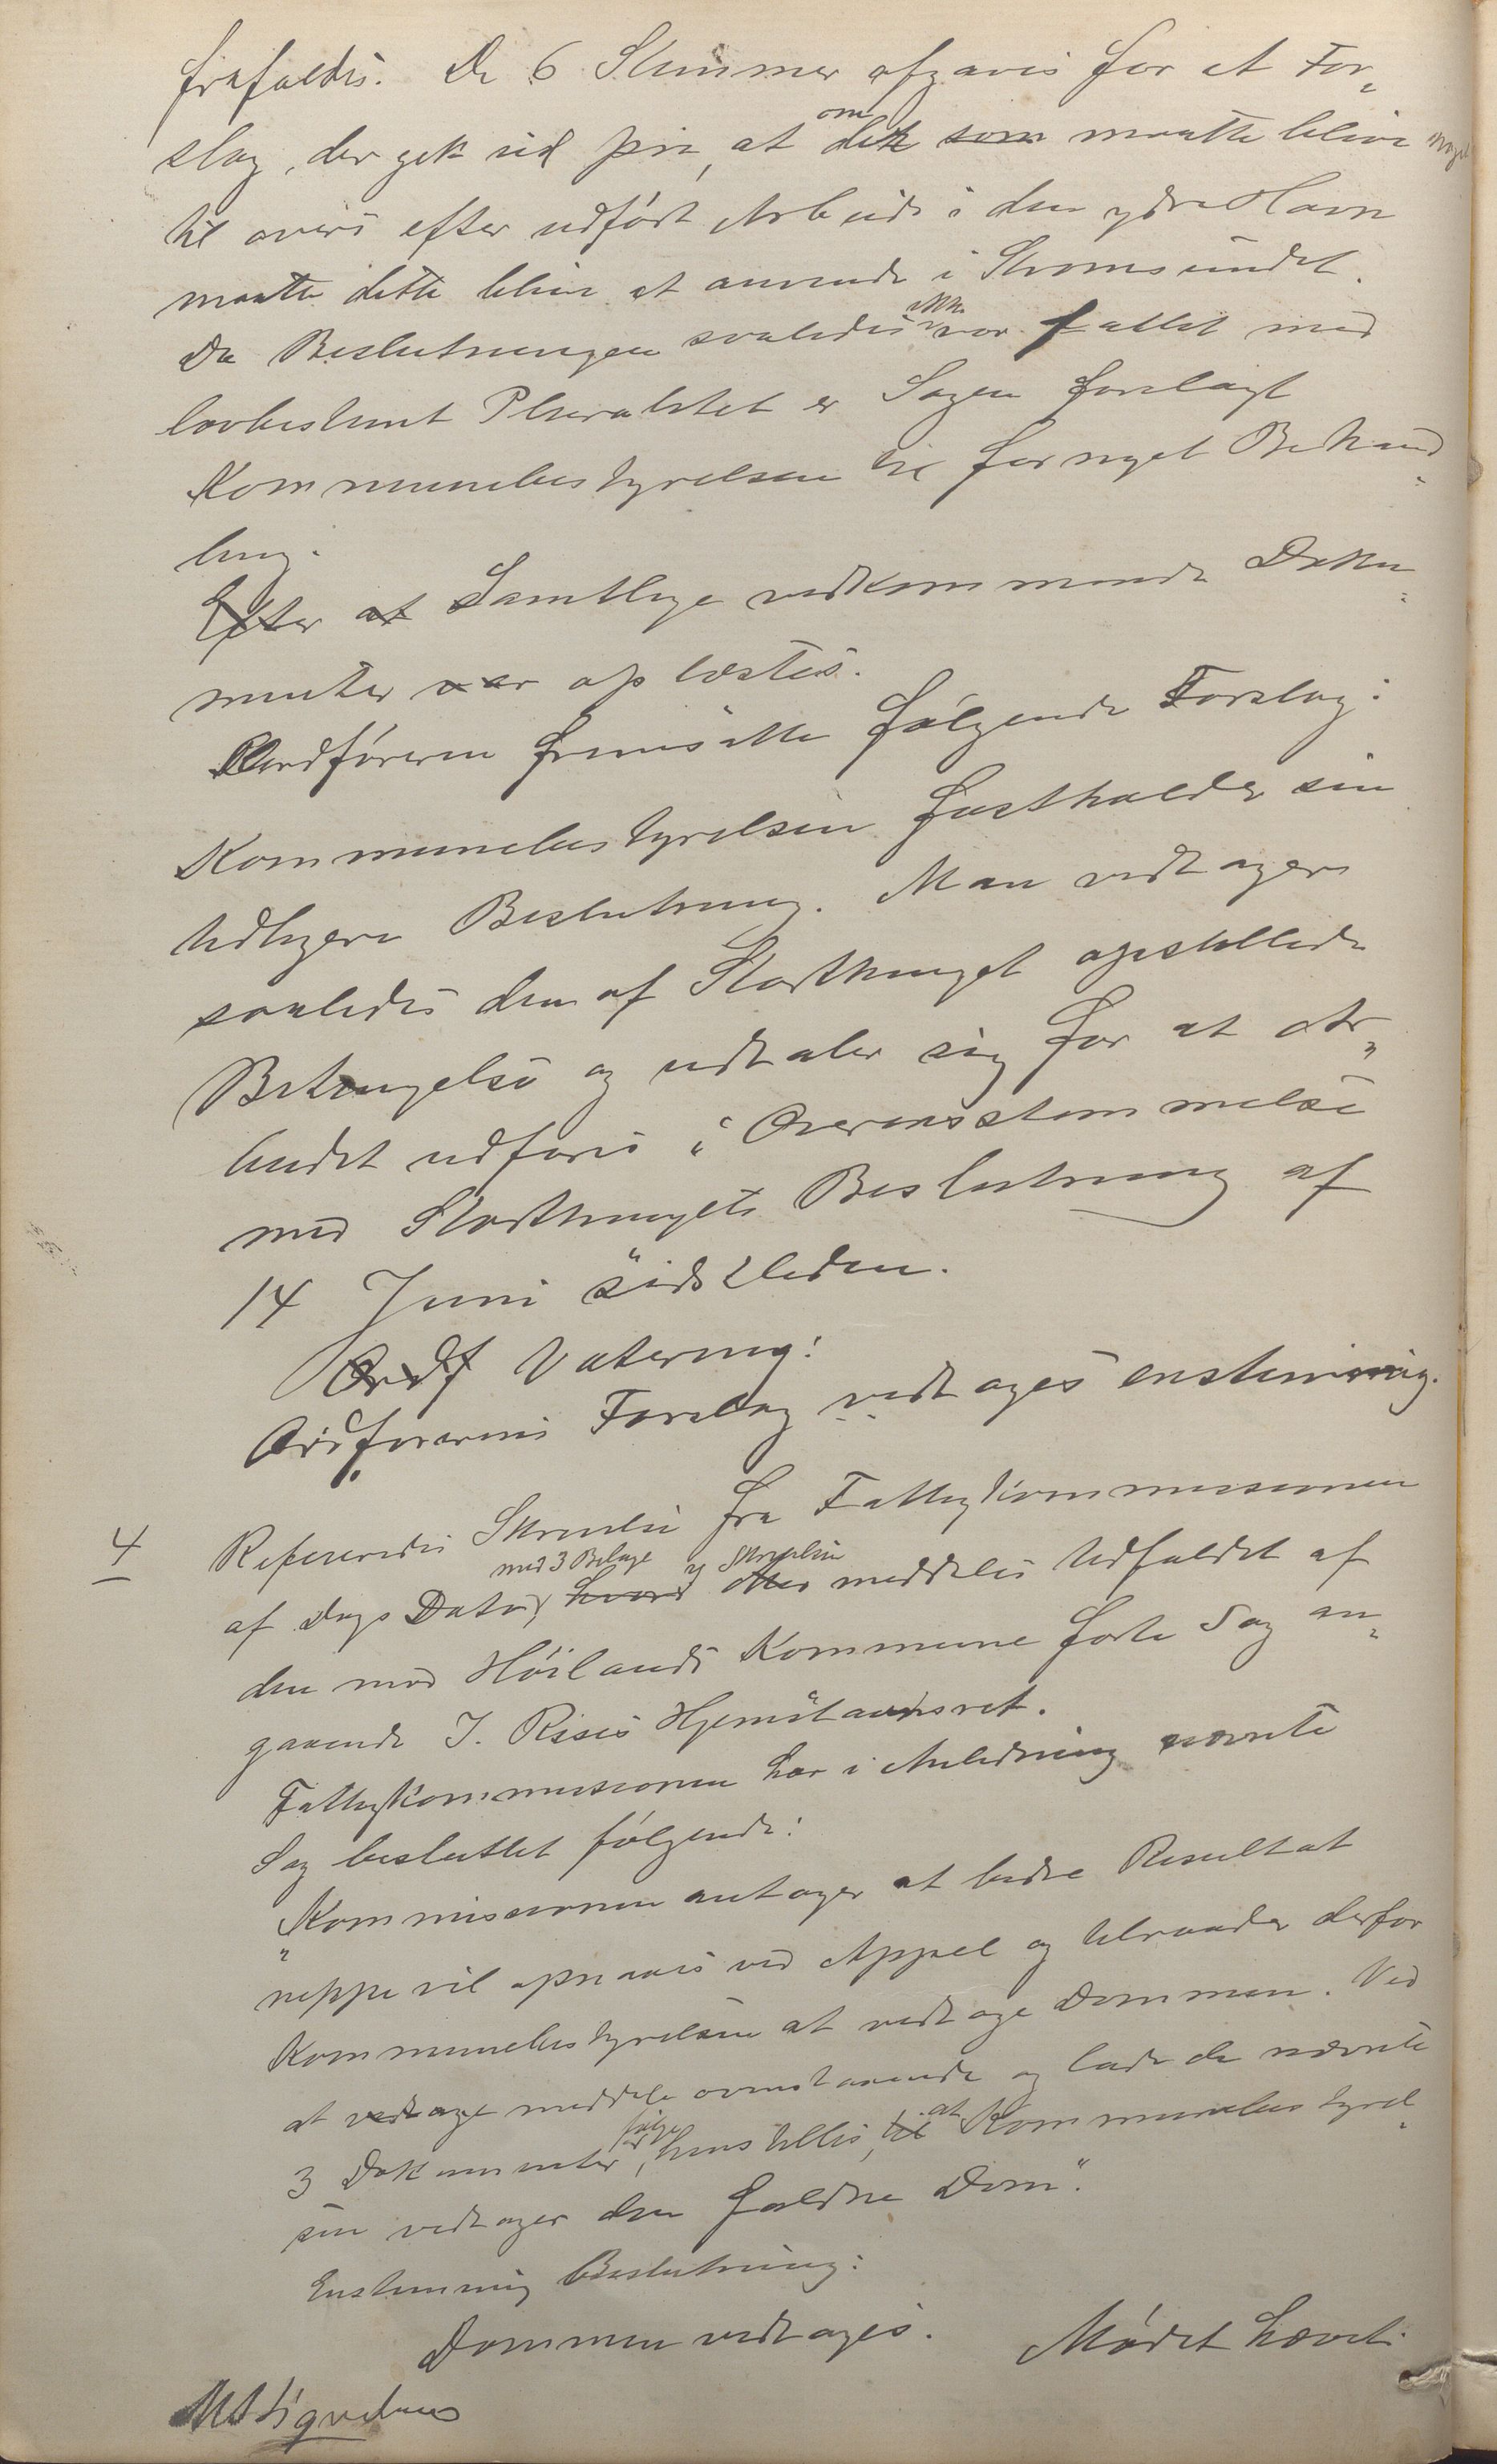 frafaldes. De 6 Stemmer afgaves for et For„
slag, der gik ud paa, at om det som maatte blive noget
til overs efter udført Arbeide i den ydre Havn
maatte dette blive at anvende i Strømsundet.
Da Beslutningen saaledes ikke var fattet med
lovbestemt Pluralitet er Sagen forelagt
Kommunebestyrelsen til fornyet Behand„
ling.
Efter at Samtlige vedkommende Doku„
menter var oplæstes.
Ordføreren fremsatte følgende Forslag:
Kommunebestyrelsen fastholder sin
tidligere Beslutning. Man vedtager
saaledes den af Storthinget opstillede
Betingelse og udtaler sig for at Ar„
beidet udføres i Overensstemmelse
med Storthingets Beslutning af
14 Juni sidstleden.
Ordf Votering:
Ordførerens Forslag vedtages enstemmig.
4 Refereredes Skrivelse fra Fattigkommissionen
af Dags Dato, med 3 Bilage hvori og Skrivelsen meddeles Udfaldet af
den mod Høilands Kommune førte Sag an„
gaaende J. Rises Hjemstavnsret.
Fattigkommissionen har i Anledning nævnte
Sag besluttet følgende:
„Kommissionen antager at bedre Resultat
neppe vil opnaaes ved Appel og tilraader derfor
Kommunebestyrelsen at vedtage Dommen. Ved
at vedtage meddele ovenstaaende og lade de nævnte
3 Dokumenter følge, henstilles, til at Kommunebestyrel„
sen vedtager den faldne Dom“.
Enstemmig Beslutning:
Dommen vedtages. Mødet hævet.